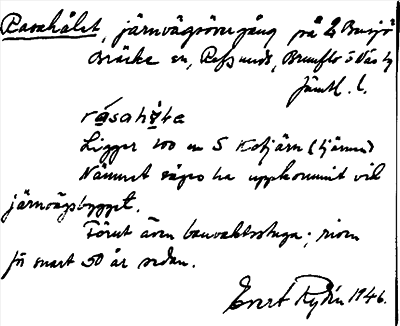 Rasahålet, järnvägsövergång på
Bräcke sn, Refsunds, Brunflo o Näs tg
Jämtl. l.
Ligger 100 m S Kotjärn (tjärnen)
Namnet säges ha uppkommit vid
järnvägsbygget.
Förut även banvaktsstuga; riven
för snart 50 år sedan.
Evert Rydin 1946.